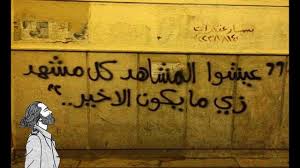 "عيشوا المشاهد كل مشهد
زي ما يكون الاخير.."